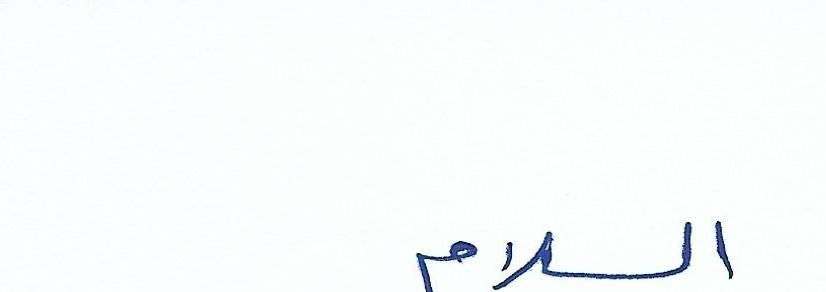 السلام